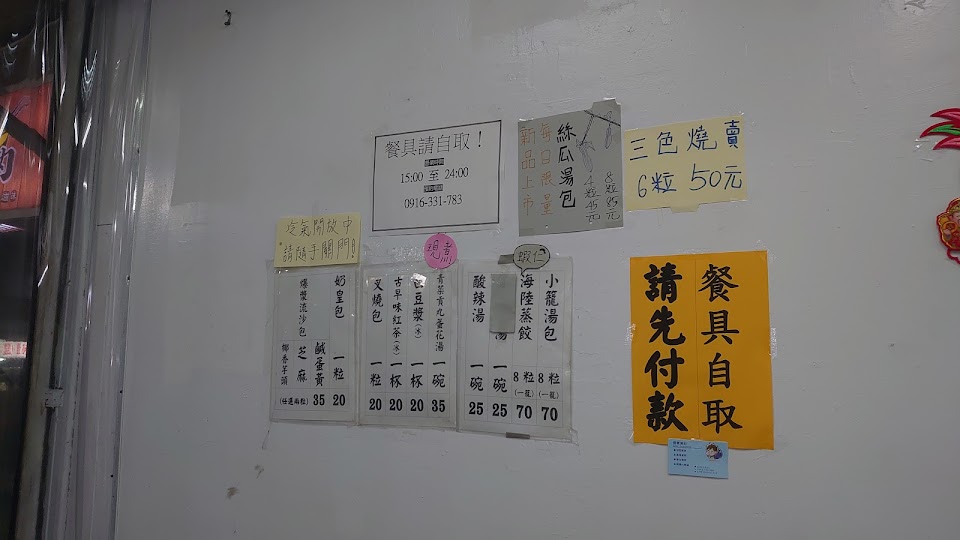 餐具請自取！
營業時間
15:00 至 24:00
預約電話
0916-331-783
絲瓜湯包
每日限量
新品上市
8粒85元
4粒45元
三色燒賣
6粒 50元
冷氣開放中
請隨手關門!
現煮
蝦仁
小籠湯包 8粒(一籠) 70
海陸蒸餃 8粒(一籠) 70
湯 一碗 25
酸辣湯 一碗 25
青菜貢丸蛋花湯 一碗 35
豆漿(冰) 一杯 20
古早味紅茶(冰) 一杯 20
叉燒包 一粒 20
奶皇包 一粒 20
爆漿流沙包 鹹蛋黃 芝麻 椰香芋頭 (任選兩粒) 35
餐具自取
請先付款